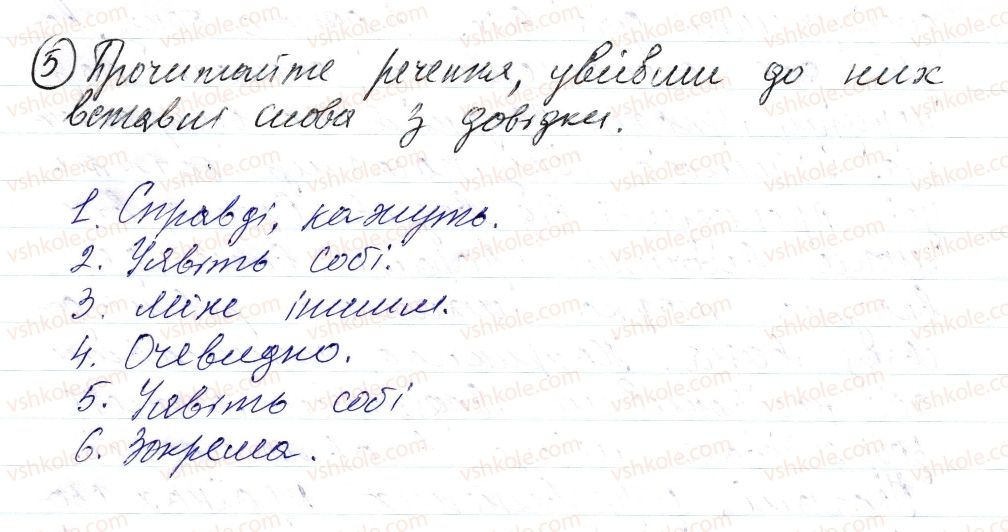 5 Прочитайте речення, увівши до них
вставні слова з довідки.
1. Справді, кажуть.
2. Уявіть собі.
3. Між іншим.
4. Очевидно.
5. Уявіть собі
6. Зокрема.